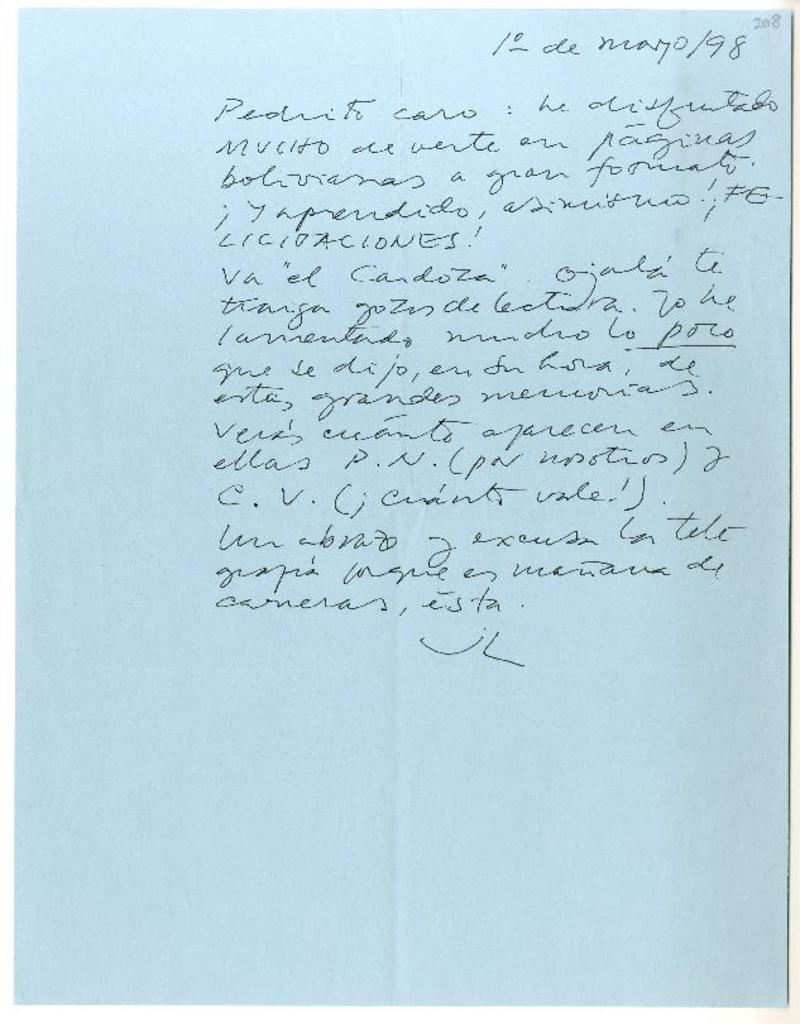 208
1º de mayo/98
Pedrito caro: he disfrutado
MUCHO de verte en páginas
bolivianas a gran formato.
¡Y aprendido, asimismo! ¡FE-
LICITACIONES!
Va "el Cardoza". Ojalá te
traiga gozos de lectura. Yo he
lamentado mucho lo poco
que se dijo, en su hora, de
estas grandes memorias.
Verás cuánto aparecen en
ellas P.N. (por nosotros) y
C.V. (¡cuánto vale!).
Un abrazo y excusa la tele
grafía porque es mañana de
carreras, ésta.
JL